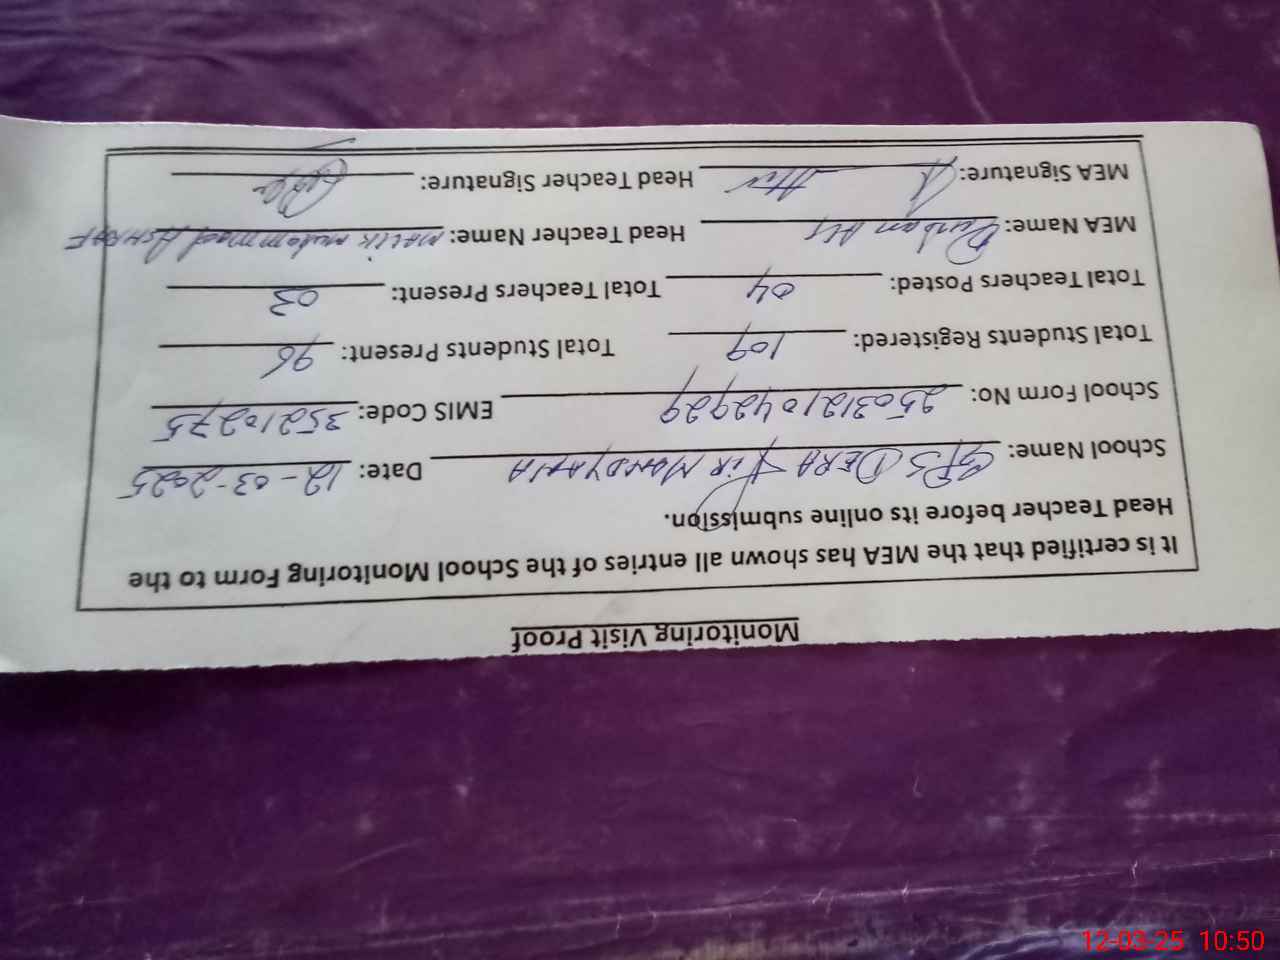 Monitoring Visit Proof
It is certified that the MEA has shown all entries of the School Monitoring Form to the
Head Teacher before its online submission.
School Name: GPS DERA MANDYANA Date: 12-03-2025
School Form No: 2503121042929 EMIS Code: 35210275
Total Students Registered: 109 Total Students Present: 96
Total Teachers Posted: 04 Total Teachers Present: 03
MEA Name: Ali Head Teacher Name: MALIK muhammad ASHRAF
MEA Signature: Head Teacher Signature:
12-03-25 10:50